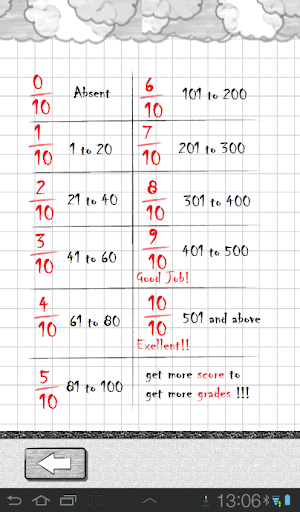 0/10 Absent
1/10 1 to 20
2/10 21 to 40
3/10 41 to 60
4/10 61 to 80
5/10 81 to 100
6/10 101 to 200
7/10 201 to 300
8/10 301 to 400
9/10 401 to 500
Good Job!
10/10 501 and above
Exellent!!
get more score to
get more grades !!!
13:06